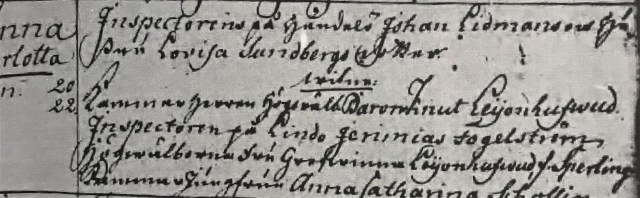 nna Inspectorens på Händelö Johan Lidmansons
rlotta Fru Lovisa Sundbergs
n. 20 witne:
22 Kammar Herren Högwälb Baron Knut Leijonhufwud.
Inspectoren på Lindö Jeremias Fogelström
Högwälborna Fru Grefwinna Leijonhufwud f. Sperling
Kammar Jungfrun Anna Catharina